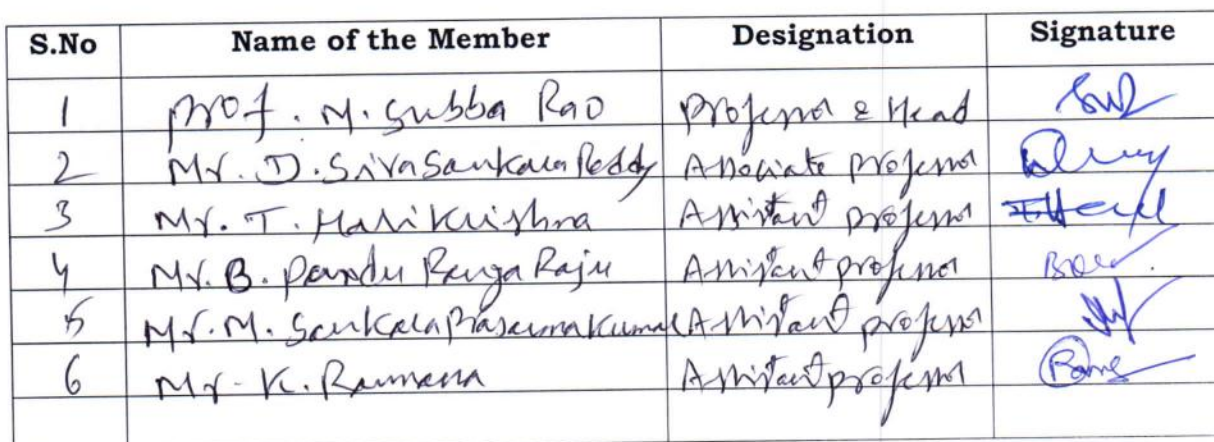 S.No Name of the Member Designation Signature
1 Prof. M. Subba Rao Professor & Head
2 Mr. D. Siva Sankara Reddy Associate Professor
3 Mr. T. Hari Krishna Assistant Professor
4 Mr. B. Pandu Ranga Raju Assistant professor
5 Mr. M. Sankara Prasanna Kumar Assistant professor
6 Mr. K. Ramana Assistant professor